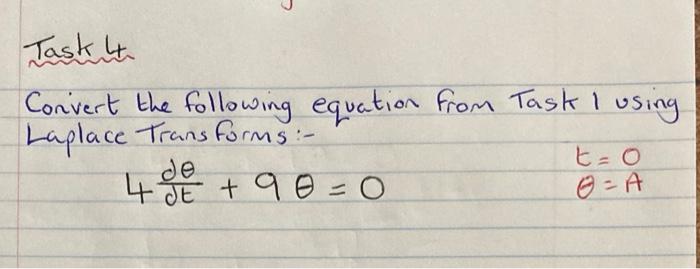 Task 4
Convert the following equation from Task 1 using
Laplace Transforms :-
4 dθ/dt + 9 θ = 0
t = 0
θ = A